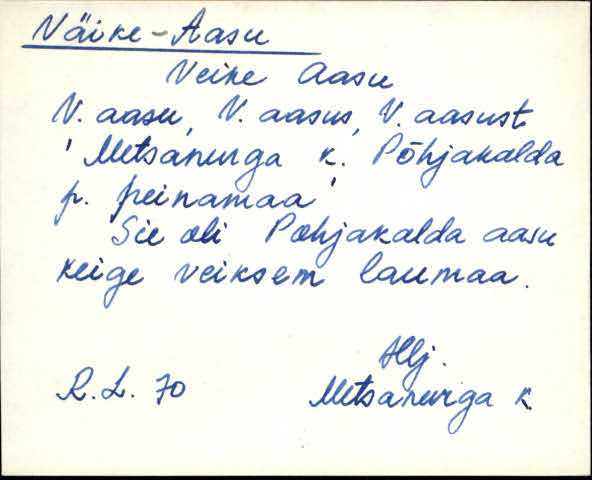 Näike-Aasu
Veike Aasu
V. aasu, V. aasus, V. aasust
'Metsanurga k. Põhjakalda
p. heinamaa'
Sie oli Pohjakalda aasu
keige veiksem laumaa.
Hlj.
R.L. 70 Metsanurga k.